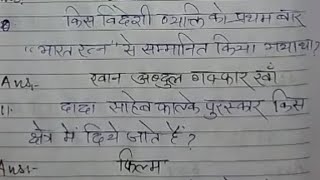 किस विदेशी व्यक्ति को प्रथम बार
"भारत रत्न" से सम्मानित किया गया था?
Ans:- खान अब्दुल गफ्फार खाँ
11. दादा साहेब फाल्के पुरस्कार किस
क्षेत्र में दिये जाते हैं?
Ans:- फिल्म